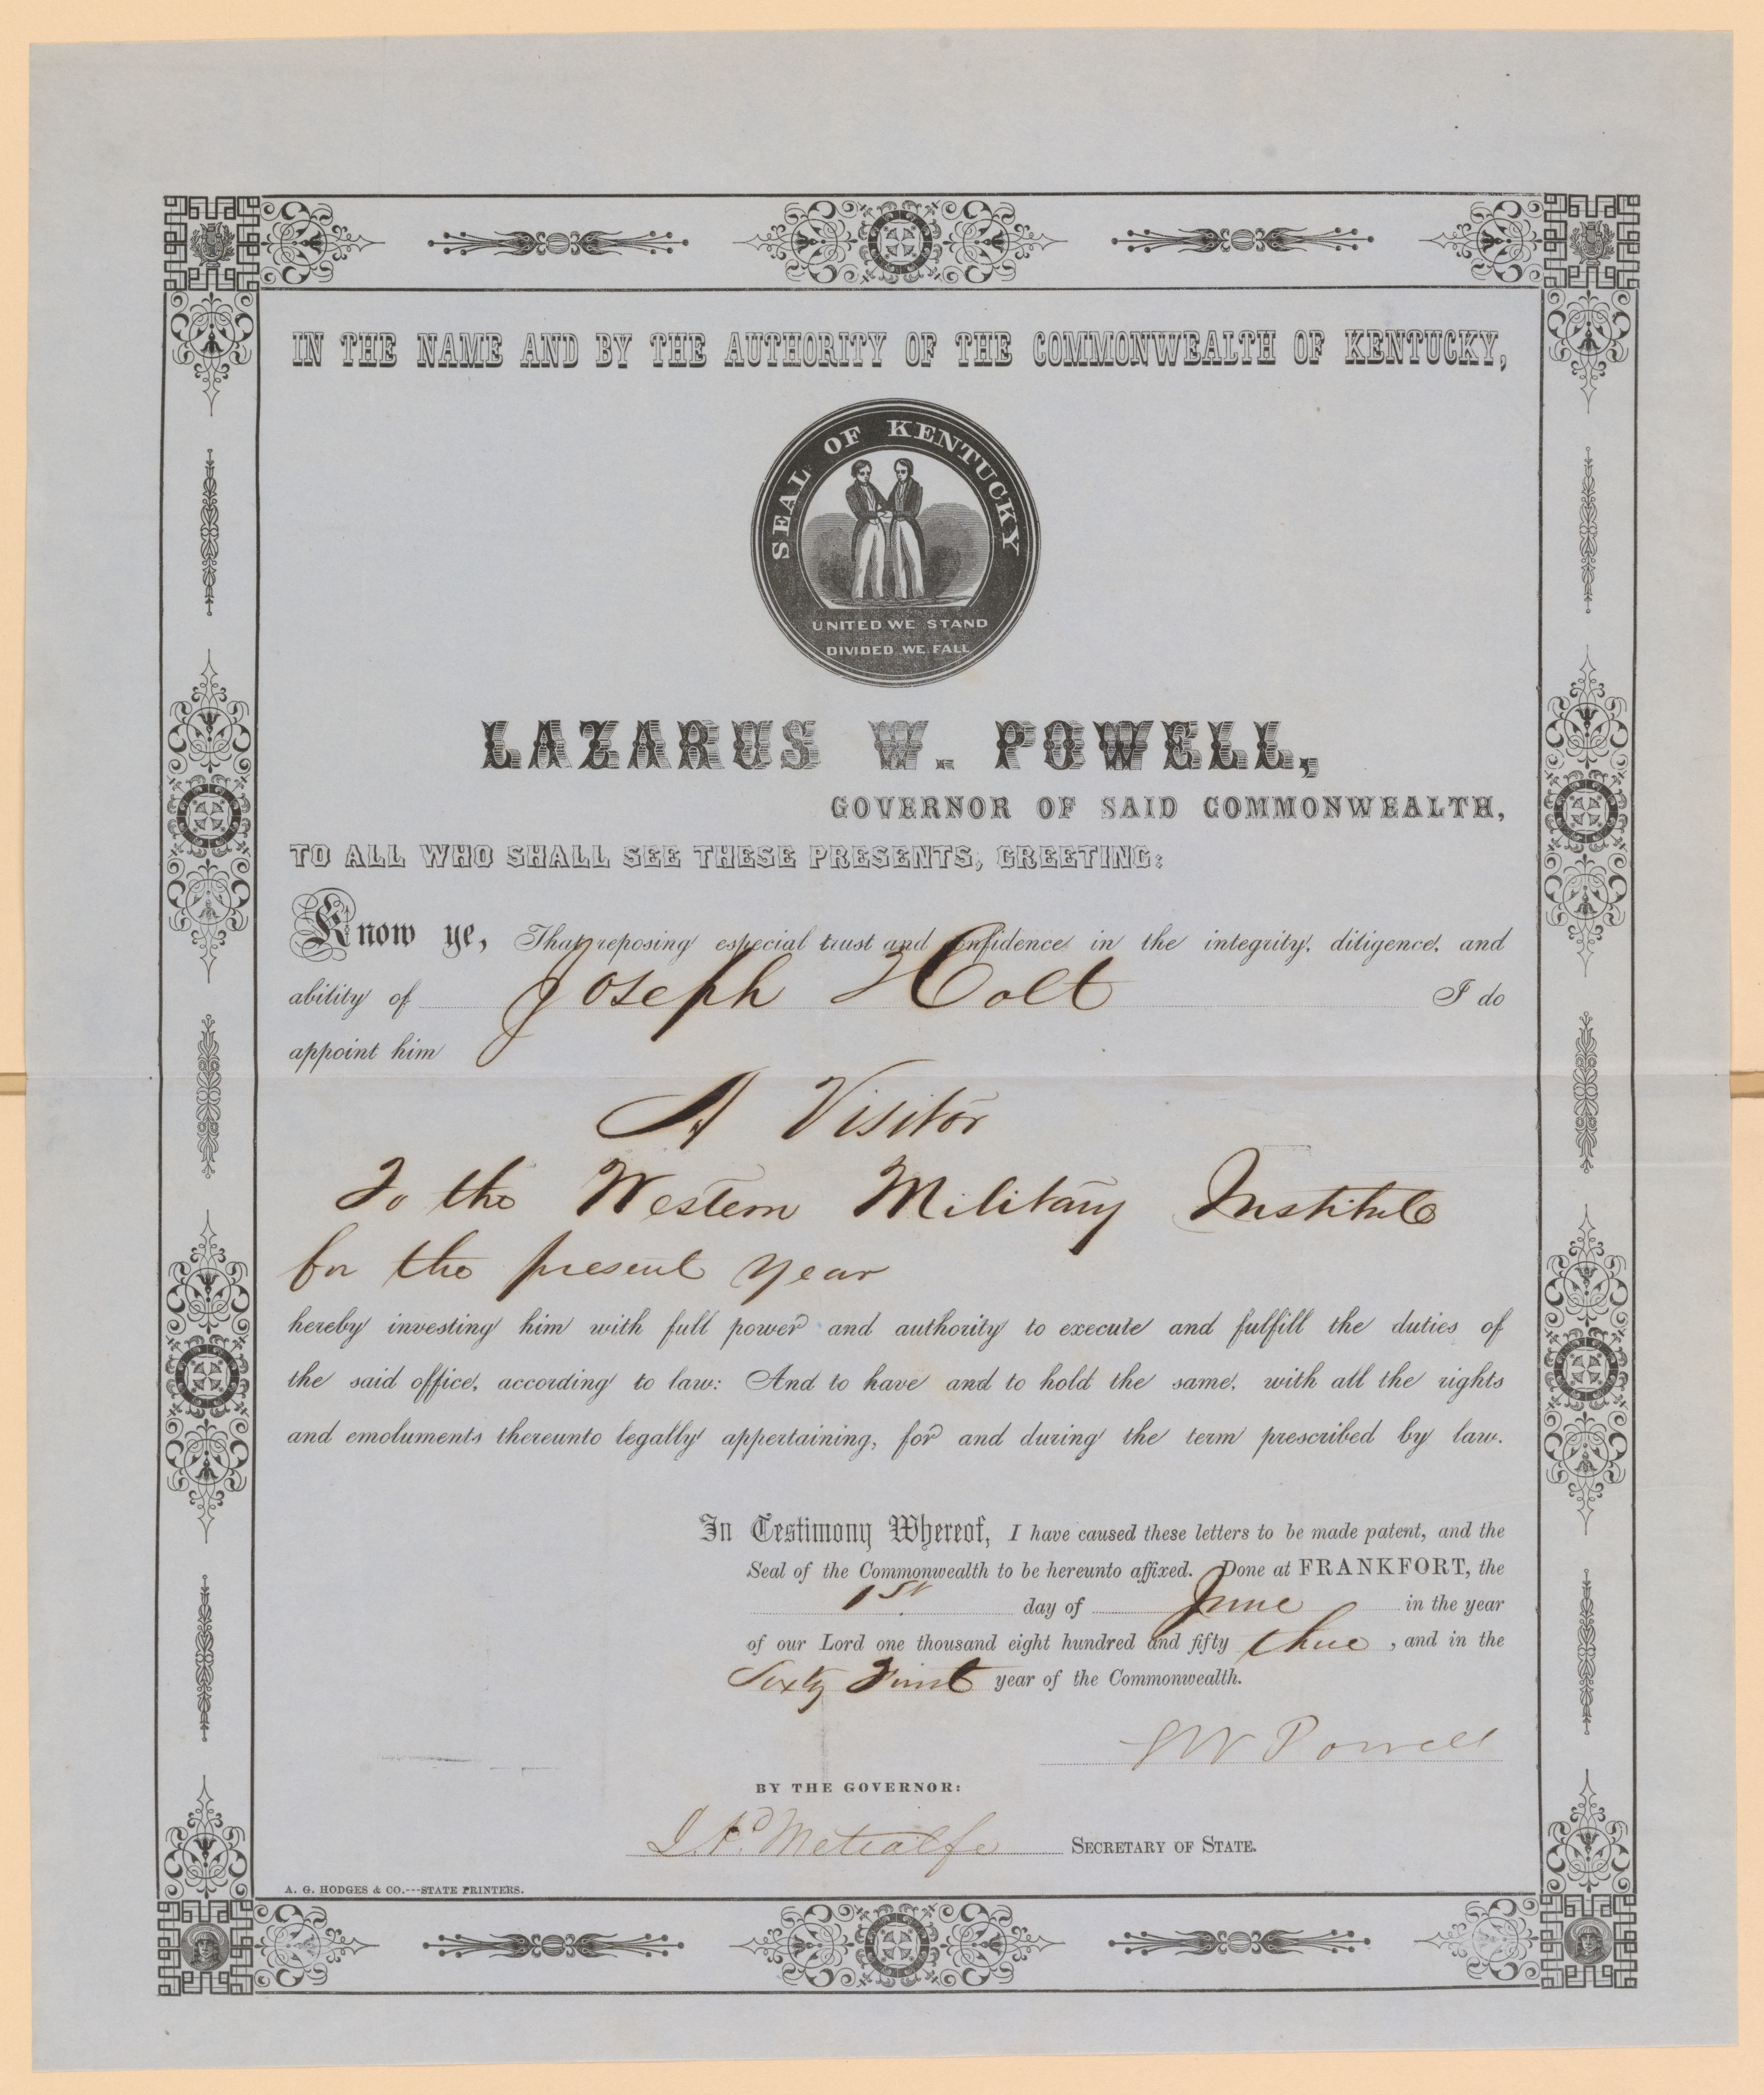 IN THE NAME AND BY THE AUTHORITY OF THE COMMONWEALTH OF KENTUCKY,
SEAL OF KENTUCKY
UNITED WE STAND
DIVIDED WE FALL
LAZARUS W. POWELL,
GOVERNOR OF SAID COMMONWEALTH,
TO ALL WHO SHALL SEE THESE PRESENTS, GREETING:
Know ye, That reposing especial trust and confidence in the integrity, diligence, and
ability of Joseph Holt I do
appoint him
A Visitor
To the Western Military Institute
for the present year
hereby investing him with full power and authority to execute and fulfill the duties of
the said office, according to law: And to have and to hold the same, with all the rights
and emoluments thereunto legally appertaining, for and during the term prescribed by law.
In Testimony Whereof, I have caused these letters to be made patent, and the
Seal of the Commonwealth to be hereunto affixed. Done at FRANKFORT, the
1st day of June in the year
of our Lord one thousand eight hundred and fifty three, and in the
Sixty First year of the Commonwealth.
L W Powell
BY THE GOVERNOR:
Metcalfe SECRETARY OF STATE.
A. G. HODGES & CO.---STATE PRINTERS.